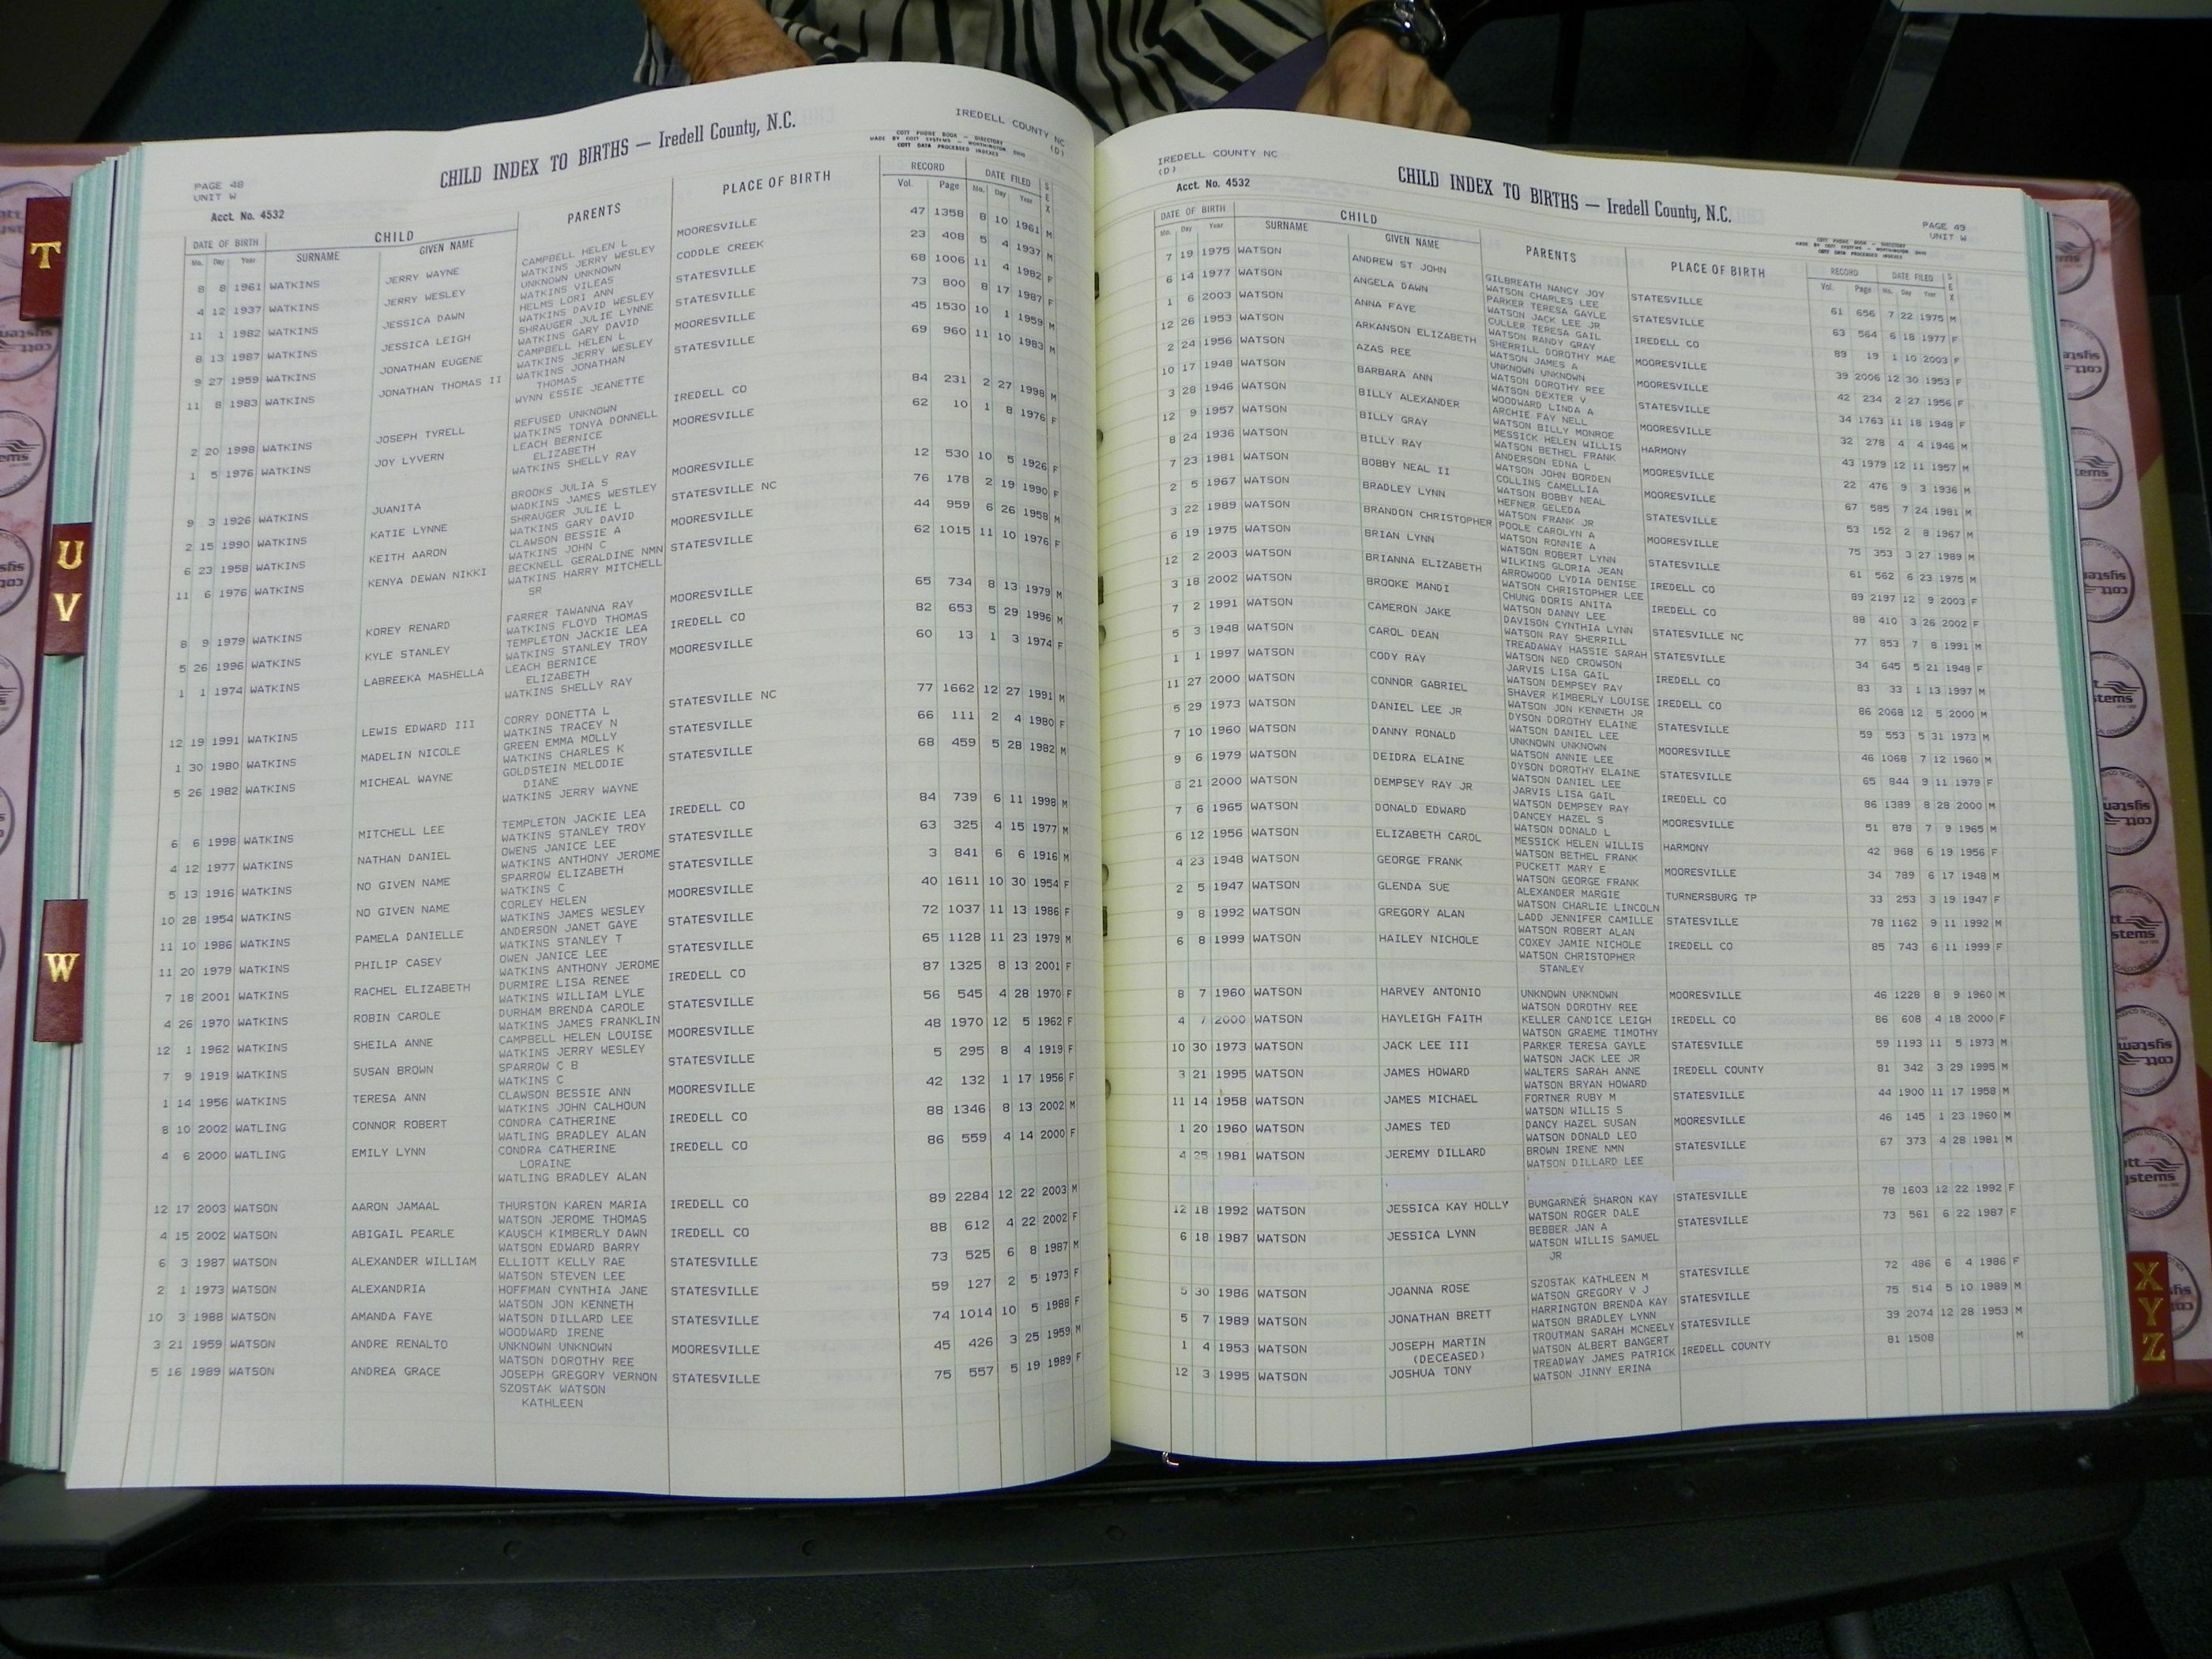 PAGE 48
UNIT W
CHILD INDEX TO BIRTHS — Iredell County, N.C.
IREDELL COUNTY NC
(D)
COTT PHONE BOOK - DIRECTORY
MADE BY COTT SYSTEMS - WORTHINGTON OHIO
COTT DATA PROCESSED INDEXES
Acct. No. 4532
DATE OF BIRTH CHILD PARENTS PLACE OF BIRTH RECORD DATE FILED SEX
Mo. Day Year SURNAME GIVEN NAME Vol. Page Mo. Day Year
8 8 1961 WATKINS JERRY WAYNE CAMPBELL HELEN L MOORESVILLE 47 1358 8 10 1961 M
WATKINS JERRY WESLEY
4 12 1937 WATKINS JERRY WESLEY UNKNOWN UNKNOWN CODDLE CREEK 23 408 5 4 1937 M
WATKINS VILEAS
11 1 1982 WATKINS JESSICA DAWN HELMS LORI ANN STATESVILLE 68 1006 11 4 1982 F
WATKINS DAVID WESLEY
8 13 1987 WATKINS JESSICA LEIGH SHRAUGER JULIE LYNNE STATESVILLE 73 800 8 17 1987 F
WATKINS GARY DAVID
9 27 1959 WATKINS JONATHAN EUGENE CAMPBELL HELEN L MOORESVILLE 45 1530 10 1 1959 M
WATKINS JERRY WESLEY
11 8 1983 WATKINS JONATHAN THOMAS II WATKINS JONATHAN STATESVILLE 69 960 11 10 1983 M
THOMAS
WYNN ESSIE JEANETTE
2 20 1998 WATKINS JOSEPH TYRELL REFUSED UNKNOWN IREDELL CO 84 231 2 27 1998 M
WATKINS TONYA DONNELL
1 5 1976 WATKINS JOY LYVERN LEACH BERNICE MOORESVILLE 62 10 1 8 1976 F
ELIZABETH
WATKINS SHELLY RAY
9 3 1926 WATKINS JUANITA BROOKS JULIA S MOORESVILLE 12 530 10 5 1926 F
WADKINS JAMES WESTLEY
2 15 1990 WATKINS KATIE LYNNE SHRAUGER JULIE L STATESVILLE NC 76 178 2 19 1990 F
WATKINS GARY DAVID
6 23 1958 WATKINS KEITH AARON CLAWSON BESSIE A MOORESVILLE 44 959 6 26 1958 M
WATKINS JOHN C
11 6 1976 WATKINS KENYA DEWAN NIKKI BECKNELL GERALDINE NMN STATESVILLE 62 1015 11 10 1976 F
WATKINS HARRY MITCHELL
SR
8 9 1979 WATKINS KOREY RENARD FARRER TAWANNA RAY MOORESVILLE 65 734 8 13 1979 M
WATKINS FLOYD THOMAS
5 26 1996 WATKINS KYLE STANLEY TEMPLETON JACKIE LEA IREDELL CO 82 653 5 29 1996 M
WATKINS STANLEY TROY
1 1 1974 WATKINS LABREEKA MASHELLA LEACH BERNICE MOORESVILLE 60 13 1 3 1974 F
ELIZABETH
WATKINS SHELLY RAY
12 19 1991 WATKINS LEWIS EDWARD III CORRY DONETTA L STATESVILLE NC 77 1662 12 27 1991 M
WATKINS TRACEY N
1 30 1980 WATKINS MADELIN NICOLE GREEN EMMA MOLLY STATESVILLE 66 111 2 4 1980 F
WATKINS CHARLES K
5 26 1982 WATKINS MICHEAL WAYNE GOLDSTEIN MELODIE STATESVILLE 68 459 5 28 1982 M
DIANE
WATKINS JERRY WAYNE
6 6 1998 WATKINS MITCHELL LEE TEMPLETON JACKIE LEA IREDELL CO 84 739 6 11 1998 M
WATKINS STANLEY TROY
4 12 1977 WATKINS NATHAN DANIEL OWENS JANICE LEE STATESVILLE 63 325 4 15 1977 M
WATKINS ANTHONY JEROME
5 13 1916 WATKINS NO GIVEN NAME SPARROW ELIZABETH STATESVILLE 3 841 6 6 1916 M
WATKINS C
10 28 1954 WATKINS NO GIVEN NAME CORLEY HELEN MOORESVILLE 40 1611 10 30 1954 F
WATKINS JAMES WESLEY
11 10 1986 WATKINS PAMELA DANIELLE ANDERSON JANET GAYE STATESVILLE 72 1037 11 13 1986 F
WATKINS STANLEY T
11 20 1979 WATKINS PHILIP CASEY OWEN JANICE LEE STATESVILLE 65 1128 11 23 1979 M
WATKINS ANTHONY JEROME
7 18 2001 WATKINS RACHEL ELIZABETH DURMIRE LISA RENEE IREDELL CO 87 1325 8 13 2001 F
WATKINS WILLIAM LYLE
4 26 1970 WATKINS ROBIN CAROLE DURHAM BRENDA CAROLE STATESVILLE 56 545 4 28 1970 F
WATKINS JAMES FRANKLIN
12 1 1962 WATKINS SHEILA ANNE CAMPBELL HELEN LOUISE MOORESVILLE 48 1970 12 5 1962 F
WATKINS JERRY WESLEY
7 9 1919 WATKINS SUSAN BROWN SPARROW C B STATESVILLE 5 295 8 4 1919 F
WATKINS C
1 14 1956 WATKINS TERESA ANN CLAWSON BESSIE ANN MOORESVILLE 42 132 1 17 1956 F
WATKINS JOHN CALHOUN
8 10 2002 WATLING CONNOR ROBERT CONDRA CATHERINE IREDELL CO 88 1346 8 13 2002 M
WATLING BRADLEY ALAN
4 6 2000 WATLING EMILY LYNN CONDRA CATHERINE IREDELL CO 86 559 4 14 2000 F
LORAINE
WATLING BRADLEY ALAN
12 17 2003 WATSON AARON JAMAAL THURSTON KAREN MARIA IREDELL CO 89 2284 12 22 2003 M
WATSON JEROME THOMAS
4 15 2002 WATSON ABIGAIL PEARLE KAUSCH KIMBERLY DAWN IREDELL CO 88 612 4 22 2002 F
WATSON EDWARD BARRY
6 3 1987 WATSON ALEXANDER WILLIAM ELLIOTT KELLY RAE STATESVILLE 73 525 6 8 1987 M
WATSON STEVEN LEE
2 1 1973 WATSON ALEXANDRIA HOFFMAN CYNTHIA JANE STATESVILLE 59 127 2 5 1973 F
WATSON JON KENNETH
10 3 1988 WATSON AMANDA FAYE WATSON DILLARD LEE STATESVILLE 74 1014 10 5 1988 F
WOODWARD IRENE
3 21 1959 WATSON ANDRE RENALTO UNKNOWN UNKNOWN MOORESVILLE 45 426 3 25 1959 M
WATSON DOROTHY REE
5 16 1989 WATSON ANDREA GRACE JOSEPH GREGORY VERNON STATESVILLE 75 557 5 19 1989 F
SZOSTAK WATSON
KATHLEEN
IREDELL COUNTY NC
(D)
CHILD INDEX TO BIRTHS — Iredell County, N.C.
PAGE 49
UNIT W
Acct. No. 4532
MADE BY COTT SYSTEMS - WORTHINGTON OHIO
COTT DATA PROCESSED INDEXES
DATE OF BIRTH CHILD PARENTS PLACE OF BIRTH RECORD DATE FILED SEX
Mo. Day Year SURNAME GIVEN NAME Vol. Page Mo. Day Year
7 19 1975 WATSON ANDREW ST JOHN GILBREATH NANCY JOY STATESVILLE 61 656 7 22 1975 M
WATSON CHARLES LEE
6 14 1977 WATSON ANGELA DAWN PARKER TERESA GAYLE STATESVILLE 63 564 6 18 1977 F
WATSON JACK LEE JR
1 6 2003 WATSON ANNA FAYE CULLER TERESA GAIL IREDELL CO 89 19 1 10 2003 F
WATSON RANDY GRAY
12 26 1953 WATSON ARKANSON ELIZABETH SHERRILL DOROTHY MAE MOORESVILLE 39 2006 12 30 1953 F
WATSON JAMES A
2 24 1956 WATSON AZAS REE UNKNOWN UNKNOWN MOORESVILLE 42 234 2 27 1956 F
WATSON DOROTHY REE
10 17 1948 WATSON BARBARA ANN WATSON DEXTER V STATESVILLE 34 1763 11 18 1948 F
WOODWARD LINDA A
3 28 1946 WATSON BILLY ALEXANDER ARCHIE FAY NELL MOORESVILLE 32 278 4 4 1946 M
WATSON BILLY MONROE
12 9 1957 WATSON BILLY GRAY MESSICK HELEN WILLIS HARMONY 43 1979 12 11 1957 M
WATSON BETHEL FRANK
8 24 1936 WATSON BILLY RAY ANDERSON EDNA L MOORESVILLE 22 476 9 3 1936 M
WATSON JOHN BORDEN
7 23 1981 WATSON BOBBY NEAL II COLLINS CAMELLIA MOORESVILLE 67 585 7 24 1981 M
WATSON BOBBY NEAL
2 5 1967 WATSON BRADLEY LYNN HEFNER GELEDA STATESVILLE 53 152 2 8 1967 M
WATSON FRANK JR
3 22 1989 WATSON BRANDON CHRISTOPHER POOLE CAROLYN A MOORESVILLE 75 353 3 27 1989 M
WATSON RONNIE A
6 19 1975 WATSON BRIAN LYNN WATSON ROBERT LYNN STATESVILLE 61 562 6 23 1975 M
WILKINS GLORIA JEAN
12 2 2003 WATSON BRIANNA ELIZABETH ARROWOOD LYDIA DENISE IREDELL CO 89 2197 12 9 2003 F
WATSON CHRISTOPHER LEE
3 18 2002 WATSON BROOKE MANDI CHUNG DORIS ANITA IREDELL CO 88 410 3 26 2002 F
WATSON DANNY LEE
7 2 1991 WATSON CAMERON JAKE DAVISON CYNTHIA LYNN STATESVILLE NC 77 853 7 8 1991 M
WATSON RAY SHERRILL
5 3 1948 WATSON CAROL DEAN TREADAWAY HASSIE SARAH STATESVILLE 34 645 5 21 1948 F
WATSON NED CROWSON
1 1 1997 WATSON CODY RAY JARVIS LISA GAIL IREDELL CO 83 33 1 13 1997 M
WATSON DEMPSEY RAY
11 27 2000 WATSON CONNOR GABRIEL SHAVER KIMBERLY LOUISE IREDELL CO 86 2068 12 5 2000 M
WATSON JON KENNETH JR
5 29 1973 WATSON DANIEL LEE JR DYSON DOROTHY ELAINE STATESVILLE 59 553 5 31 1973 M
WATSON DANIEL LEE
7 10 1960 WATSON DANNY RONALD UNKNOWN UNKNOWN MOORESVILLE 46 1068 7 12 1960 M
WATSON ANNIE LEE
9 6 1979 WATSON DEIDRA ELAINE DYSON DOROTHY ELAINE STATESVILLE 65 844 9 11 1979 F
WATSON DANIEL LEE
8 21 2000 WATSON DEMPSEY RAY JR JARVIS LISA GAIL IREDELL CO 86 1389 8 28 2000 M
WATSON DEMPSEY RAY
7 6 1965 WATSON DONALD EDWARD DANCEY HAZEL S MOORESVILLE 51 878 7 9 1965 M
WATSON DONALD L
6 12 1956 WATSON ELIZABETH CAROL MESSICK HELEN WILLIS HARMONY 42 968 6 19 1956 F
WATSON BETHEL FRANK
4 23 1948 WATSON GEORGE FRANK PUCKETT MARY E MOORESVILLE 34 789 6 17 1948 M
WATSON GEORGE FRANK
2 5 1947 WATSON GLENDA SUE ALEXANDER MARGIE TURNERSBURG TP 33 253 3 19 1947 F
WATSON CHARLIE LINCOLN
9 8 1992 WATSON GREGORY ALAN LADD JENNIFER CAMILLE STATESVILLE 78 1162 9 11 1992 M
WATSON ROBERT ALAN
6 8 1999 WATSON HAILEY NICHOLE COXEY JAMIE NICHOLE IREDELL CO 85 743 6 11 1999 F
WATSON CHRISTOPHER
STANLEY
8 7 1960 WATSON HARVEY ANTONIO UNKNOWN UNKNOWN MOORESVILLE 46 1228 8 9 1960 M
WATSON DOROTHY REE
4 7 2000 WATSON HAYLEIGH FAITH KELLER CANDICE LEIGH IREDELL CO 86 608 4 18 2000 F
WATSON GRAEME TIMOTHY
10 30 1973 WATSON JACK LEE III PARKER TERESA GAYLE STATESVILLE 59 1193 11 5 1973 M
WATSON JACK LEE JR
3 21 1995 WATSON JAMES HOWARD WALTERS SARAH ANNE IREDELL COUNTY 81 342 3 29 1995 M
WATSON BRYAN HOWARD
11 14 1958 WATSON JAMES MICHAEL FORTNER RUBY M STATESVILLE 44 1900 11 17 1958 M
WATSON WILLIS S
1 20 1960 WATSON JAMES TED DANCY HAZEL SUSAN MOORESVILLE 46 145 1 23 1960 M
WATSON DONALD LEO
4 25 1981 WATSON JEREMY DILLARD BROWN IRENE NMN STATESVILLE 67 373 4 28 1981 M
WATSON DILLARD LEE
12 18 1992 WATSON JESSICA KAY HOLLY BUMGARNER SHARON KAY STATESVILLE 78 1603 12 22 1992 F
WATSON ROGER DALE
6 18 1987 WATSON JESSICA LYNN BEBBER JAN A STATESVILLE 73 561 6 22 1987 F
WATSON WILLIS SAMUEL
JR
5 30 1986 WATSON JOANNA ROSE SZOSTAK KATHLEEN M STATESVILLE 72 486 6 4 1986 F
WATSON GREGORY V J
5 7 1989 WATSON JONATHAN BRETT HARRINGTON BRENDA KAY STATESVILLE 75 514 5 10 1989 M
WATSON BRADLEY LYNN
1 4 1953 WATSON JOSEPH MARTIN TROUTMAN SARAH MCNEELY STATESVILLE 39 2074 12 28 1953 M
(DECEASED) WATSON ALBERT BANGERT
12 3 1995 WATSON JOSHUA TONY TREADWAY JAMES PATRICK IREDELL COUNTY 81 1508 M
WATSON JINNY ERINA
T
U
V
W
X
Y
Z